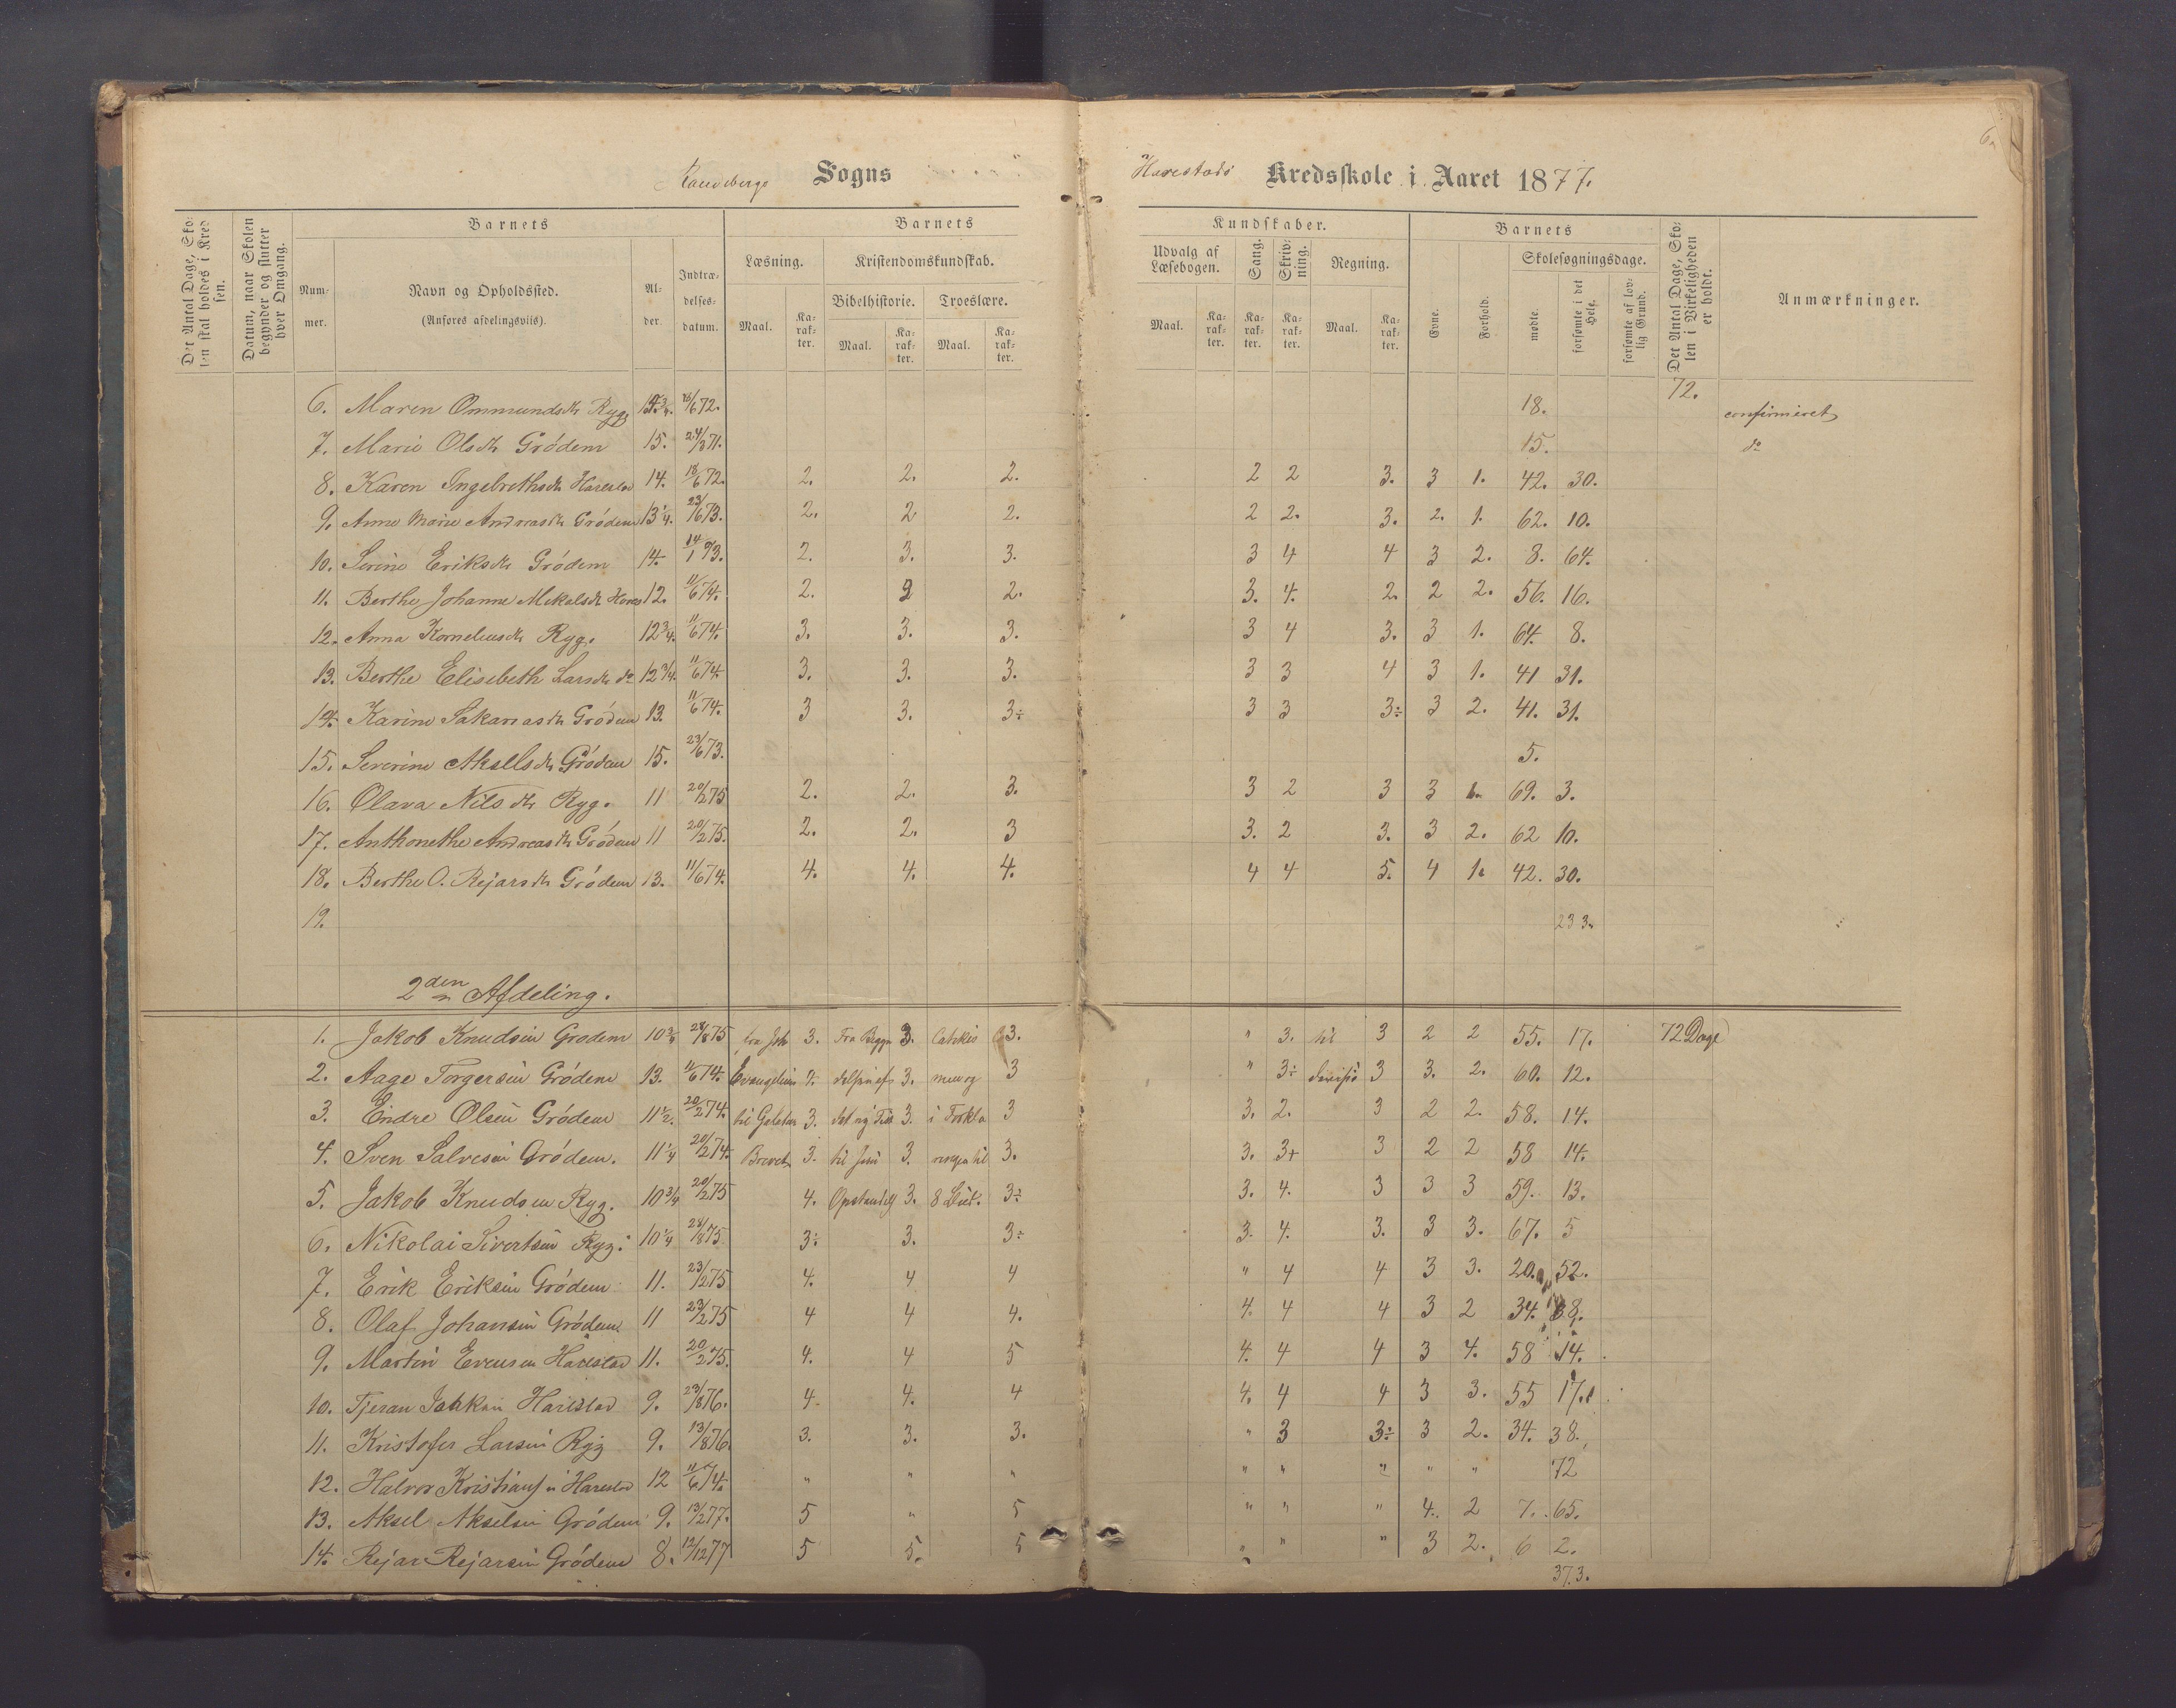 6.
Randebergs Sogns
Harestads Kredsskole i Aaret 1877.
Det Antal Dage, Skolen skal holdes i Kredsen.
Datum, naar Skolen begynder og slutter hver Omgang.
Barnets
Barnets
Kundskaber.
Barnets
Det Antal Dage, Skolen i Virkeligheden er holdt.
Anmærkninger.
Nummer.
Navn og Opholdssted.
(Anføres afdelingsviis).
Alder.
Indtrædelsesdatum.
Læsning.
Kristendomskundskab.
Bibelhistorie.
Troeslære.
Maal.
Karakter.
Maal.
Karakter.
Maal.
Karakter.
Udvalg af Læsebogen.
Sang.
Skrivning.
Regning.
Maal.
Karakter.
Karakter.
Karakter.
Maal.
Karakter.
Evne.
Forhold.
Skolesøgningsdage.
mødte.
forsømte i det Hele.
forsømte af lovlig Grund.
72.
6. Maren Ommundsdtr Rygg 26/6 72. 18. confirmeret
7. Marie Olsdtr Grödem 15. 24/3 71. 15. do
8. Karen Ingebrethsdtr Harestad 14. 18/6 72. 2. 2. 2. 2 2 3. 3 1. 42. 30.
9. Anne Marie Andreasdtr Grödem 13 1/4. 23/6 73. 2. 2 2. 2 2. 3. 2. 1. 62. 10.
10. Serine Eriksdtr Grödem 14. 14/1 73. 2. 3. 3. 3 4 4 3 2. 8. 64.
11. Berthe Johanne Mikalsdtr Hares 12. 11/6 74. 2. 2 2. 3. 4. 2. 2 2. 56. 16.
12. Anna Korneliusdtr Ryg. 12 3/4. 11/6 74. 3. 3. 3. 3 4 3. 3 1. 64. 8.
13. Berthe Elisebeth Larsdtr do 12 3/4. 11/6 74. 3. 3. 3. 3 3 4 3 1. 41 31.
14. Karine Sakariasdtr Grödem 13. 11/6 74. 3 3. 3÷ 3 3 3÷ 3 2. 41. 31.
15. Severine Aksellsdtr Grödem 15. 23/6 73. 5.
16. Olava Nilsdtr Ryg. 11 20/2 75 2. 2. 3. 3 2 3 3 1. 69. 3.
17. Anthonethe Andreasdtr Grödem 11 20/2 75. 2. 2. 3 3. 2 3. 3 2. 62 10.
18. Berthe O. Rejarsdtr Grödem 13. 11/6 74. 4. 4. 4. 4 4 5. 4 1. 42. 30.
19. 233.
2den Afdeling.
1. Jakob Knudsen Grodem 10 3/4 28/8 75 fra Joh 3. Fra Begyn 3. Catekis 3. " 3. til 3 2 2 55. 17. 72 Dage
2. Aage Torgersen Grödem 13. 11/6 74. Evangelium delsen af 3. 3 " 3÷ 3 3. 2. 60. 12.
3. Endre Olsen Grödem 11 1/2. 20/2 74. til Galater 3. det ny Test 3. i Forkla 3 3. 2. 3 2 2. 58. 14.
4. Sven Salvesen Grödem. 11 1/4 20/2 74. Brevet 3. til Jesu 3. ringen til 3. 3. 3+ 3 2 2 58 14.
5. Jakob Knudsen Ryg. 10 3/4 20/2 75 4. Opstandels 3. 8 Bud. 3÷ 3. 4. 3 3 3 59. 13.
6. Nikolai Sivertsen Ryg. 10 1/4 28/8 75. 3÷ 3. 3÷ 3. 4. 3. 3 3. 67. 5
7. Erik Eriksen Grödem 11. 23/2 75 4. 4 4 " 4 4 3 3. 20. 52.
8. Olaf Johansen Grödem. 11 23/2 75 4 4 4. 4. 4 4 3 2 34. 38.
9. Martin Evensen Harestad 11. 20/2 75. 4. 4 5 4. 4 4 3 4. 58 14.
10. Tjeran Harestad 9. 23/8 76. 4. 4. 4 4. 4 4 3 3. 55 17.
11. Kristofer Larsen Ryg 9. 13/8 76. 3. 3. 3. " 3 3÷ 3 2. 34. 38.
12. Halvor Kristians n Harestad 12 11/6 74. " " " " " " " " 72
13. Aksel Akselsen Grödem 9. 13/2 77. 5 " 5 " " " 4. 2 7. 65.
14. Rejar Rejarsen Grödem 8. 12/12 77 5 5. 5 " " " 3 2. 6 2.
373.